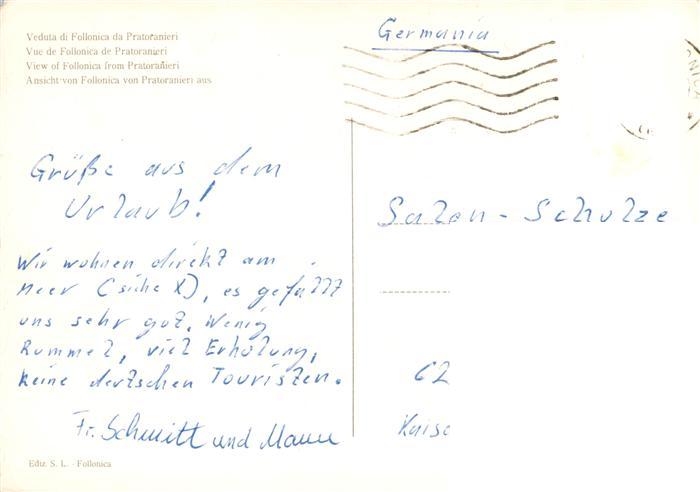 Veduta di Follonica da Pratoranieri
Vue de Follonica de Pratoranieri
View of Follonica from Pratoranieri
Ansicht von Follonica von Pratoranieri aus
Germania
Grüße aus dem
Urlaub!
Wir wohnen direkt am
Meer (siehe X), es gefällt
uns sehr gut. Wenig
Rummel, viel Erholung,
keine deutschen Touristen.
Fr. Schmitt und Mann
Salon-Schulze
62
Kaise
Ediz. S. L. - Follonica